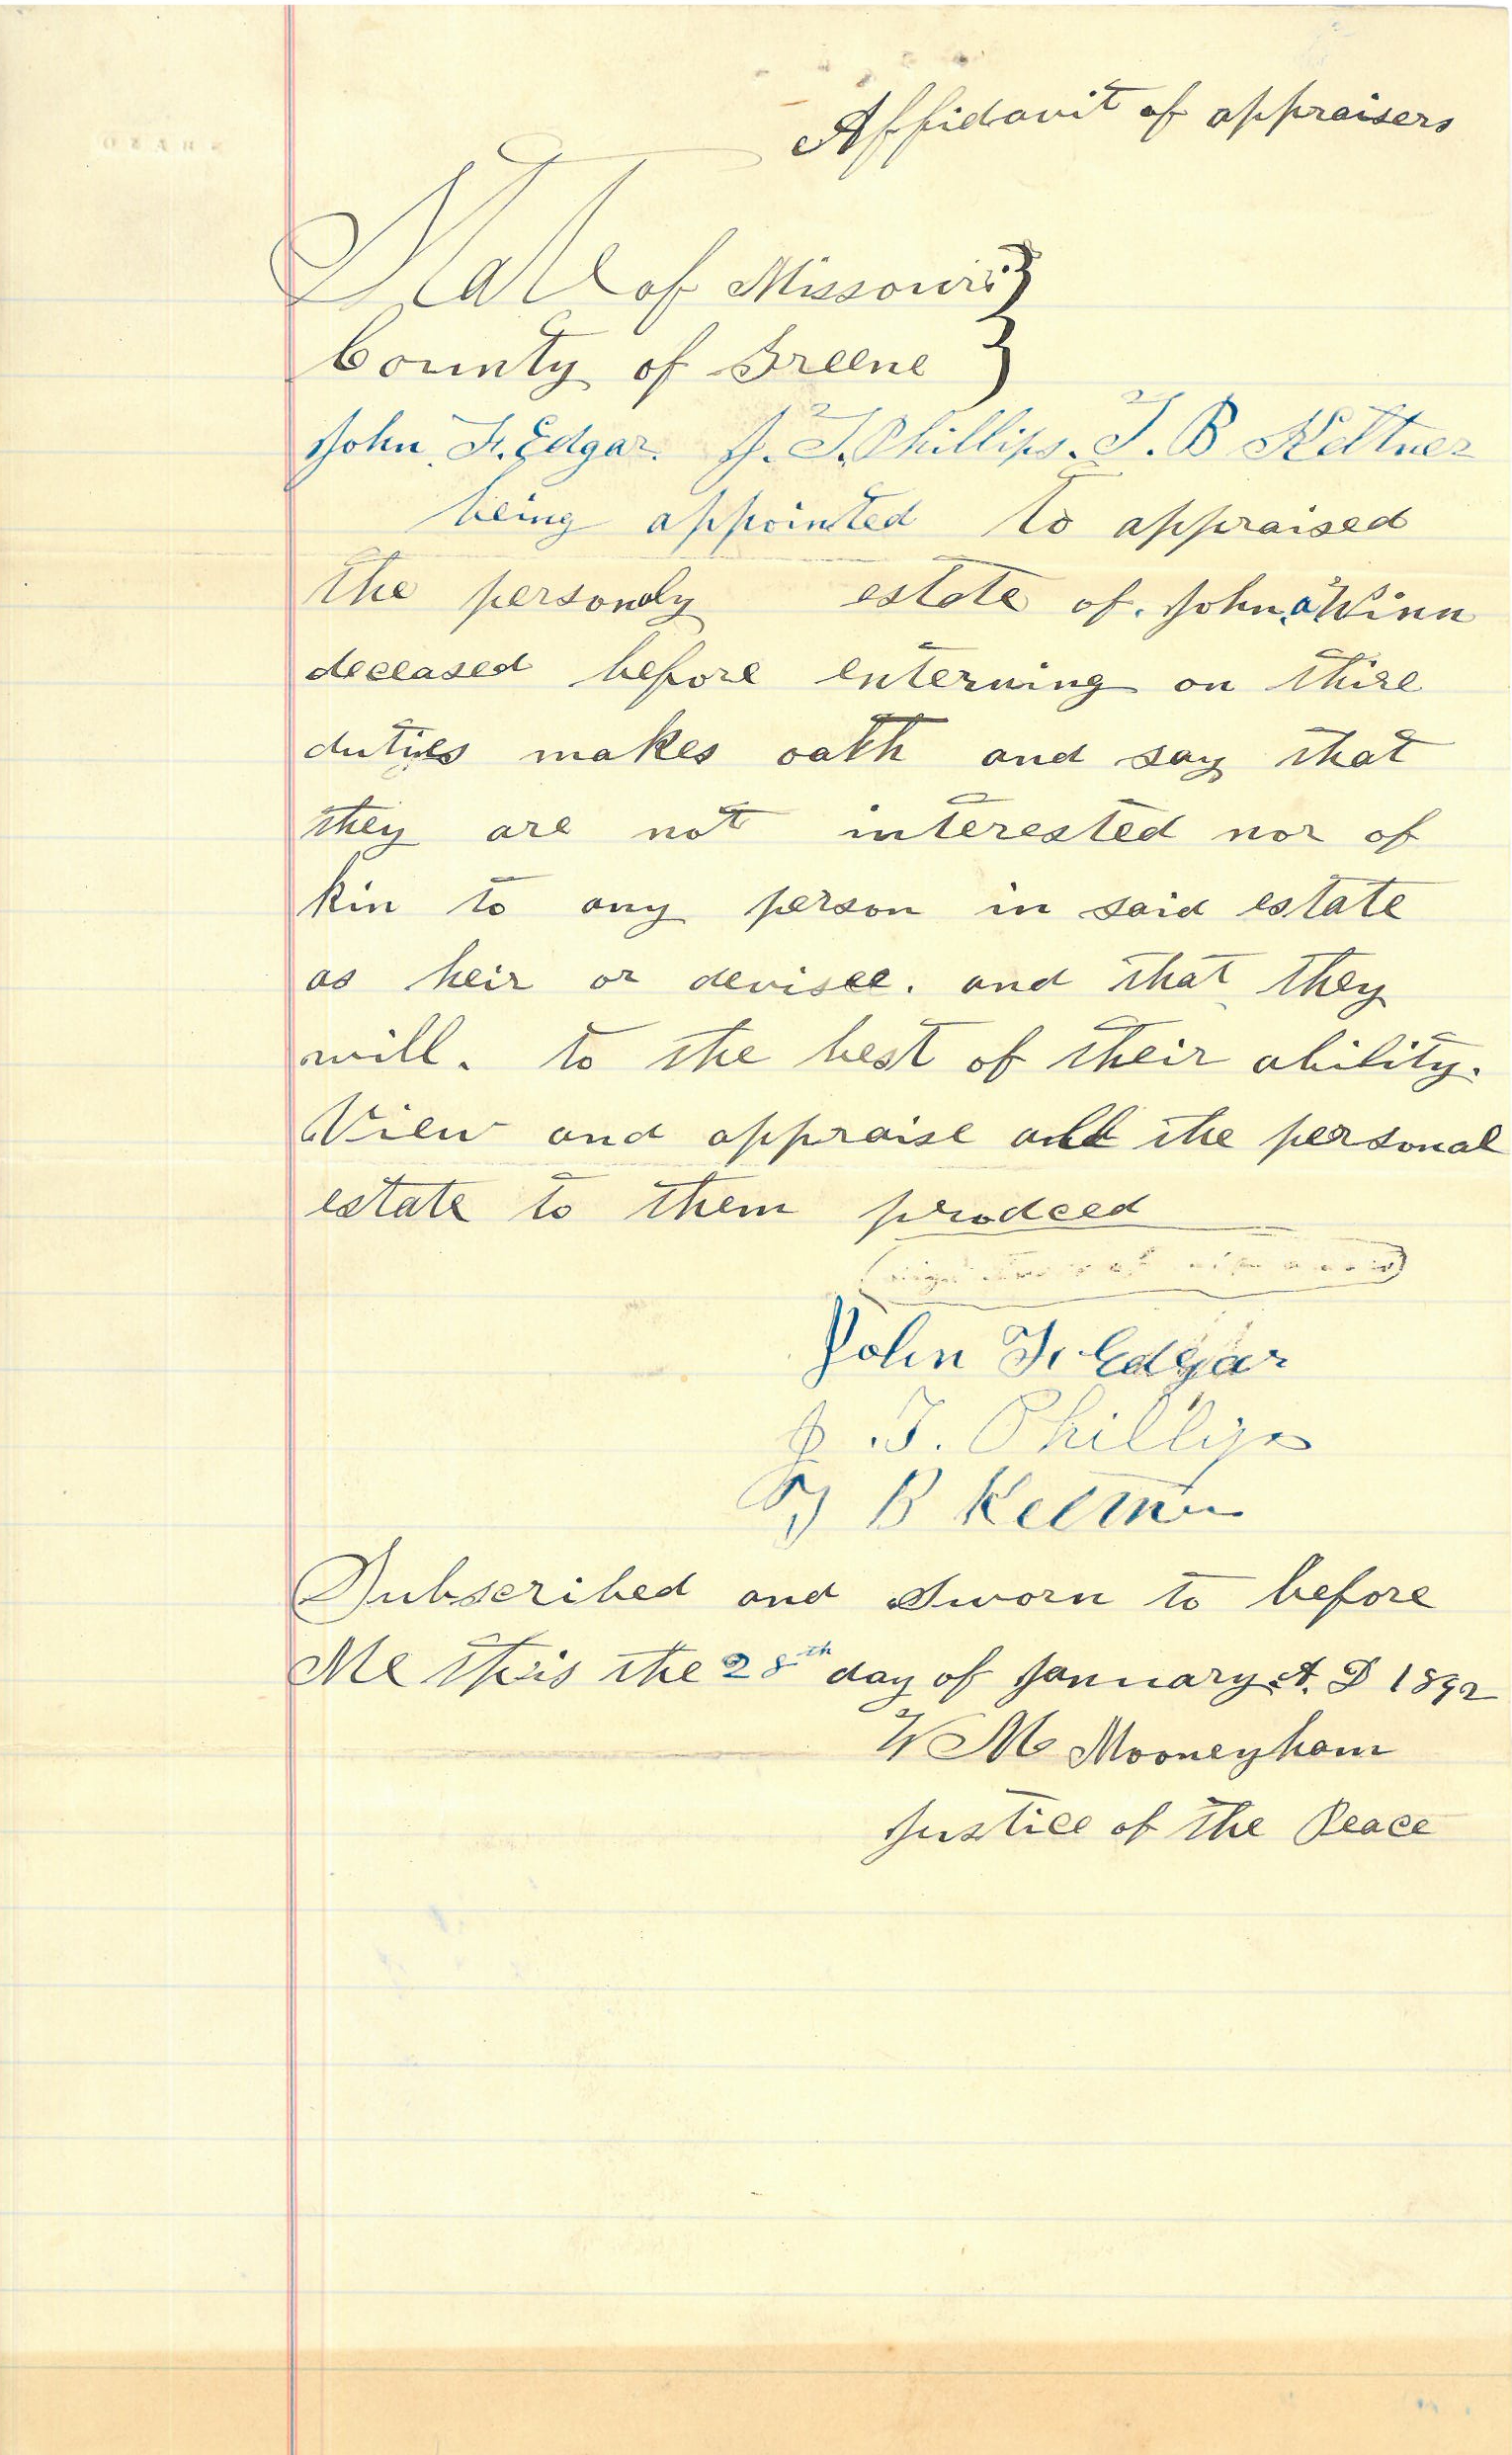 Affidavit of appraisers
State of Missouri }
County of Greene }
John F. Edgar. J. T. Phillips. T. B Keltner
being appointed to appraised
the personaly estate of. John a Winn
deceased before enterning on thire
duties makes oath and say that
they are not interested nor of
kin to any person in said estate
as heir or devisee. and that they
will. to the best of their ability.
View and appraise all the personal
estate to them prodced
John F. Edgar
J. T. Phillips
T B Keltner
Subscribed and Sworn to before
Me this the 28th day of January A. D 1892
W M Mooneyham
Justice of the Peace